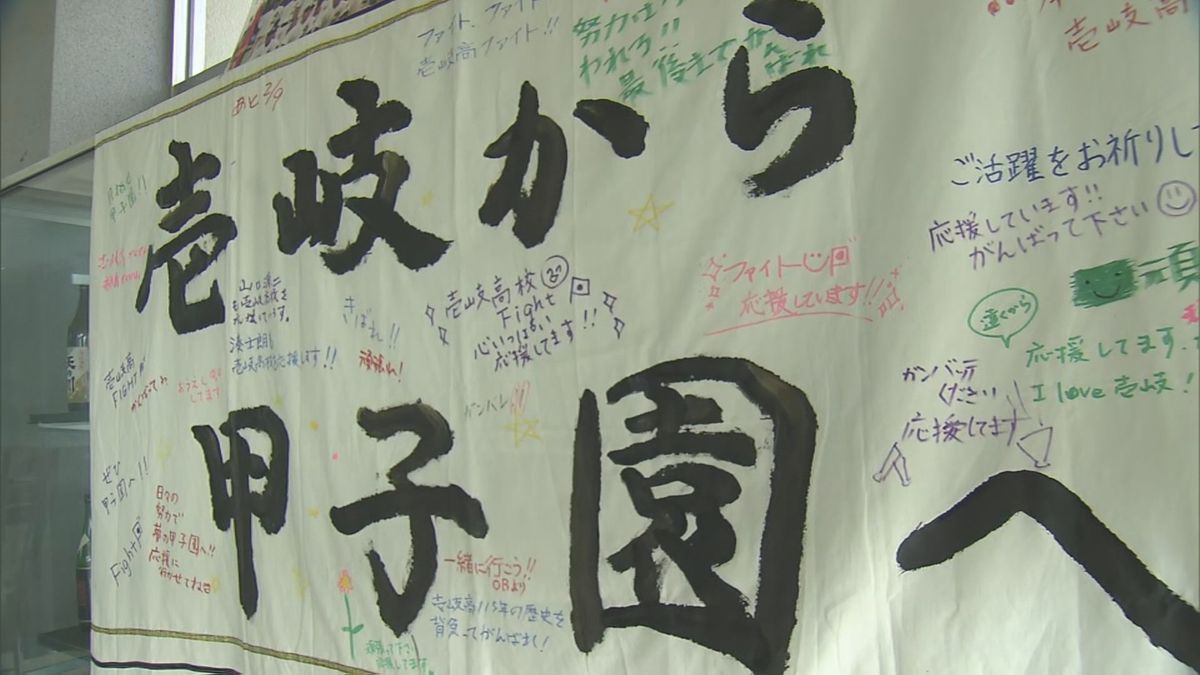 壱岐から
甲子園へ
ファイト、ファイト
壱岐高ファイト!!
あと2/9
最後まで
ご活躍をお祈りし
応援しています!!
がんばって下さい
ファイト
応援しています!!
壱岐高校
Fight
心いっぱい
応援してます!!
きばれ!!
頑張れ!
壱岐高
FIGHT
遠くから
応援してます
I love壱岐!
ガンバッテ
ください
応援してます
ガンバレ!!
ぜひ
甲子園へ!!
日々の
努力で
夢の甲子園へ!!
応援に
行かせてね
Fight
一緒に行こう!!
OBより
壱岐高115年の歴史を
背負ってがんばれ!
頑張って下さい
応援してます